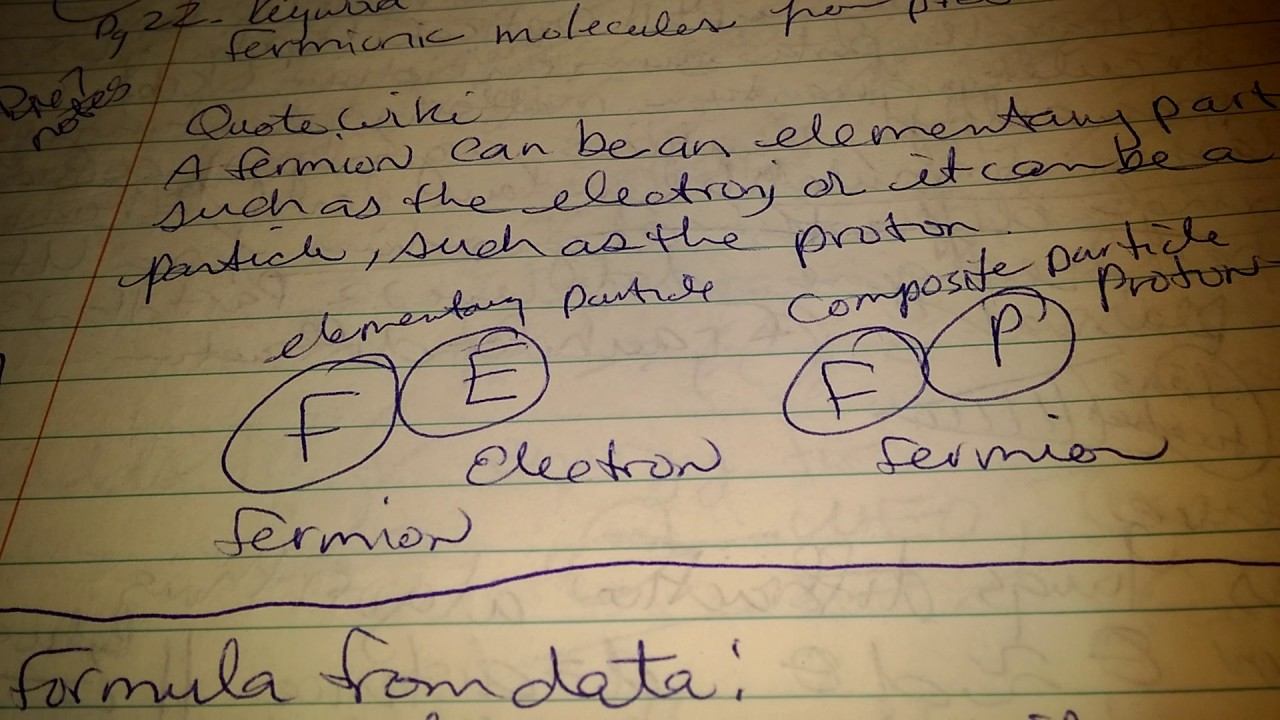 Pg 22. Keyword
fermionic molecules
notes
Quote, wiki
A fermion can be an elementary part
such as the electron, or it can be a
particle, such as the proton.
elementary particle
composite particle
Proton
F E
F P
electron
fermion
fermion
Formula from data: